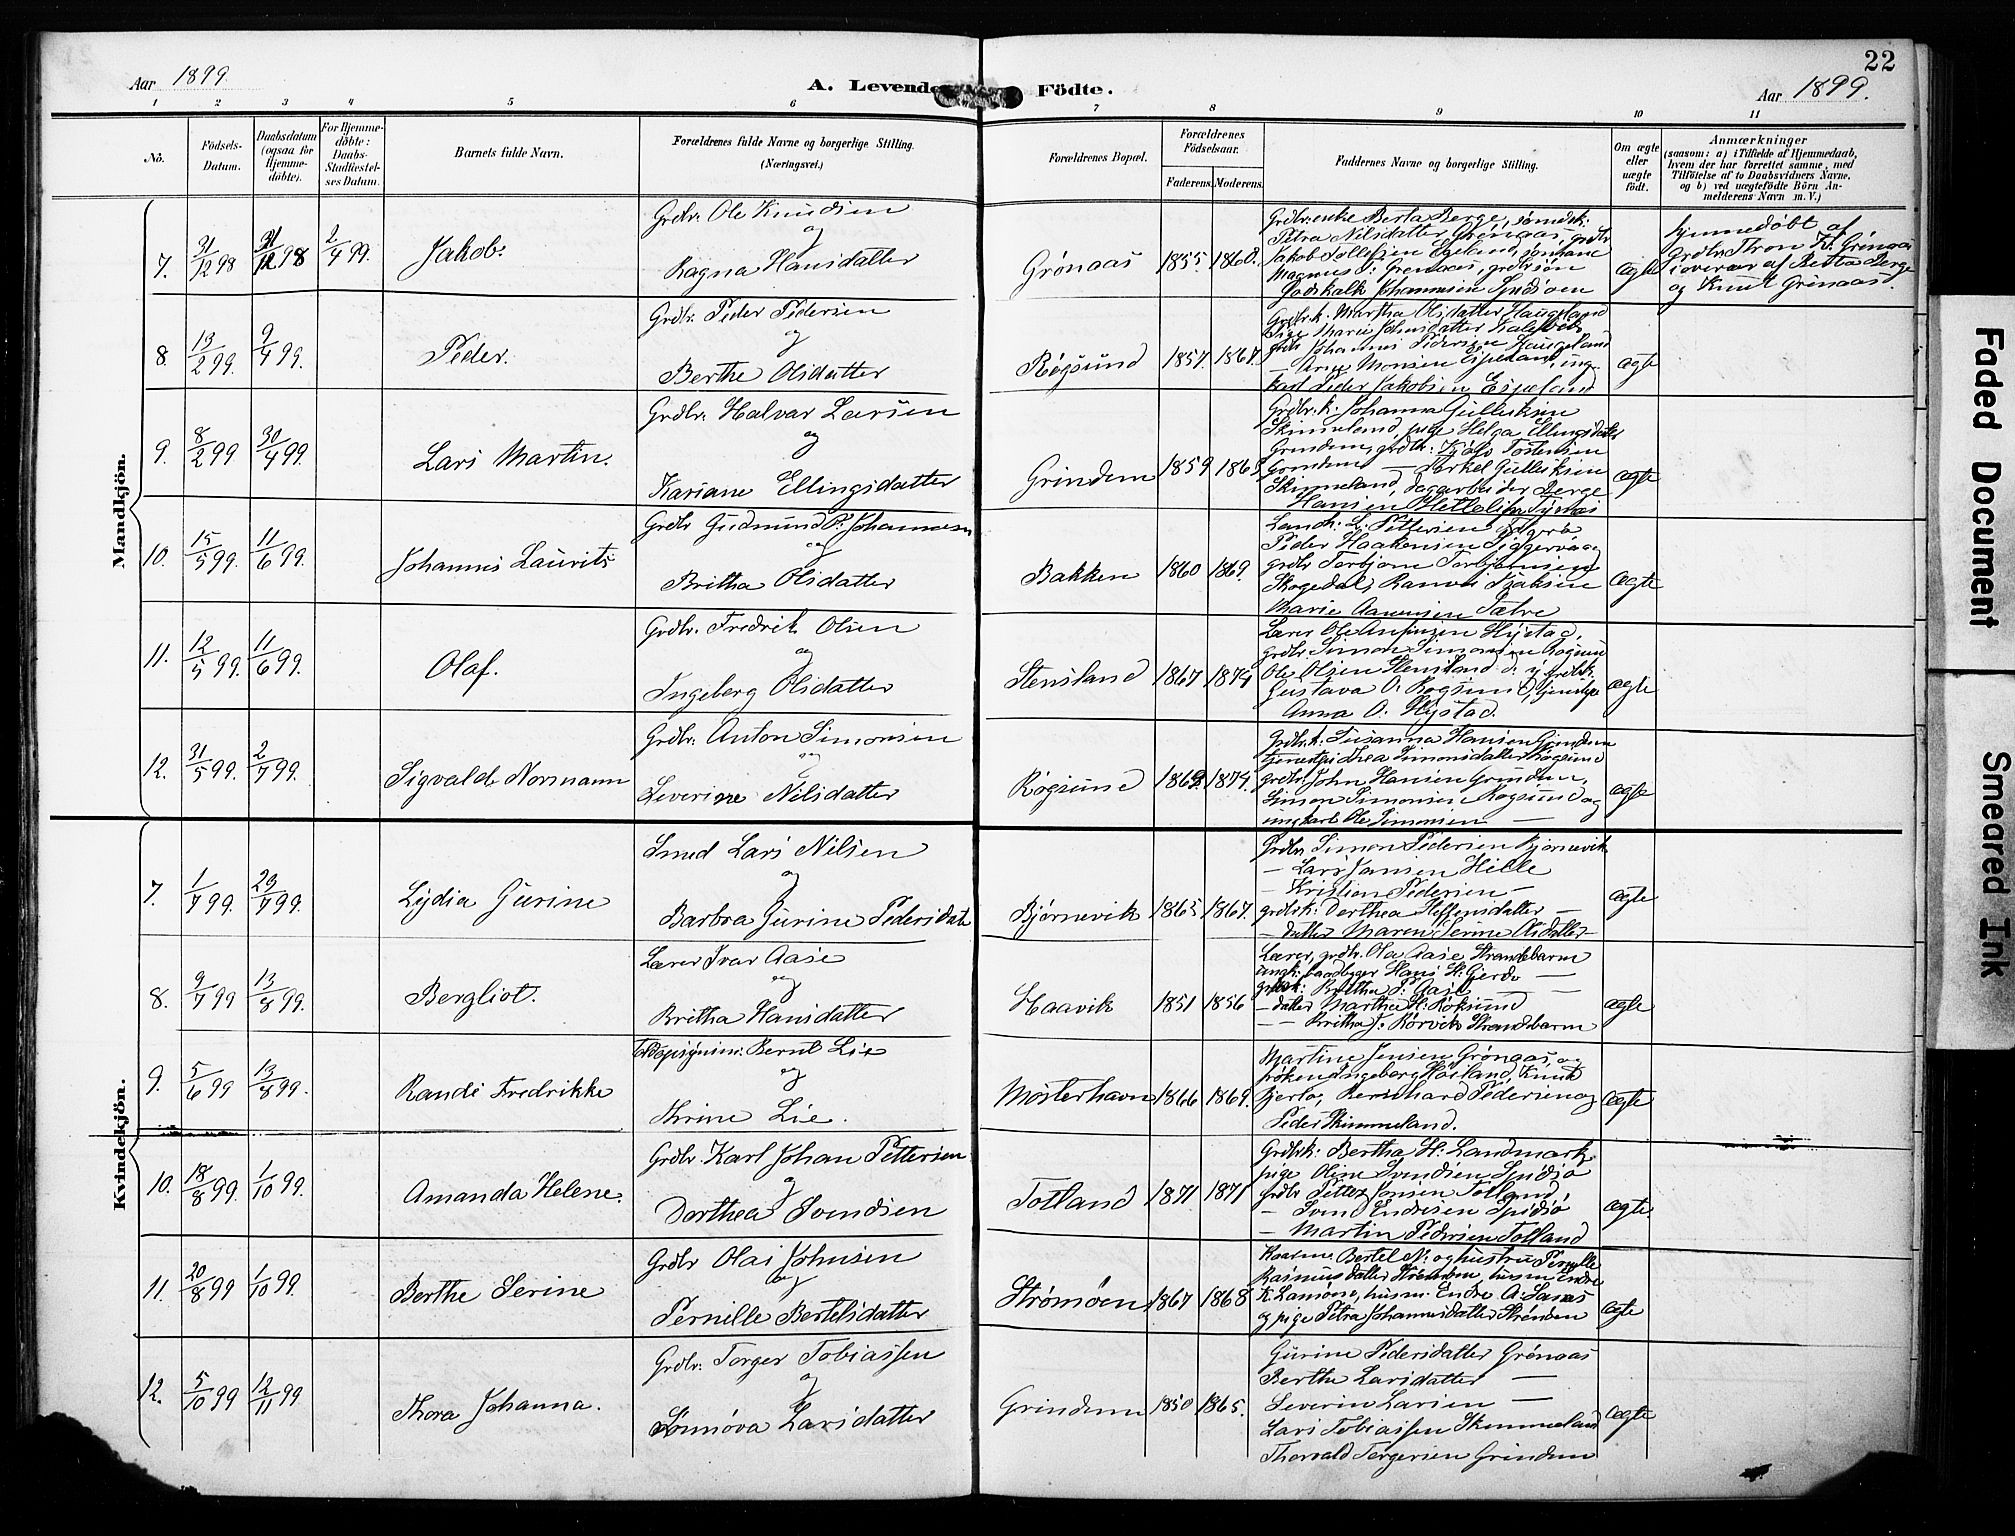 22
Aar 1899.
A. Levende Födte.
Aar 1899.
1 2 3 4 5 6 7 8 9 10 11
No.
Födsels-
Datum.
Daabsdatum
(ogsaa for
Hjemme-
döbte).
For Hjemme-
döbte:
Daabs-
Stadfæstel-
ses Datum.
Barnets fulde Navn.
Forældrenes fulde Navne og borgerlige Stilling.
(Næringsvei.)
Forældrenes Bopæl.
Forældrenes
Födselsaar.
Faderens. Moderens.
Faddernes Navne og borgerlige Stilling.
Om ægte
eller
uægte
födt.
Anmærkninger
(saasom: a) i Tilfælde af Hjemmedaab,
hvem der har forrettet samme, med
Tilföielse af to Daabsvidners Navne,
og b) ved uægtefödte Börn An-
melderens Navn m. V.)
Mandkjön.
7. 31/12 98 31/12 98 2/4 99. Jakob.
Grdbr. Ole Knudsen
og
Ragna Hansdatter
Grønaas 1855. 1860.
Grdbr.enke Berta Berge,
Petra Nilsdatter Grönaas, grdbr
Jakob Tollefsen Egeland,
Magnus Grønaas, grdbrsön
Godskalk Johannesen Spidsøen
ægte
hjemmedøbt af
grdbr. Thron K. Grönaas
i overvær af Berta Berge
og Knut Grönaas.
8. 13/2 99. 9/4 99. Peder.
Grdbr. Peder Pedersen
og
Berthe Olsdatter
Røgsund 1857. 1867.
Grdbr.k. Martha Olsdatter Haugeland
Pige Marie Johnsdatter
grdbr Johannes Pedersen Haugeland
— Arne Monsen Espeland, ung-
karl Peder Jakobsen Espeland
ægte
9. 8/2 99 30/4 99. Lars Martin.
Grdbr. Halvar Larsen
og
Kariane Ellingsdatter
Grindem 1859 1863.
Grdbr.k. Johanna Gulleksen
Skimmeland, pige Helga Ellingsdatter
Grindem, grdbr. Tostensen
Grindem — Torkel Gulleksen
Skimmeland, dagarbeider Berge
Hansen
ægte
10. 15/5 99. 11/6 99. Johannes Laurits
Grdbr Gudmund P. Johannesen
og
Britha Olsdatter
Bakken 1860 1869.
Landh. L. Pettersen
Peder Haakensen Siggervåg
grdbr Torbjörn Torbjörnsen
Skogedal, Ranvei
Marie Aanensen Sætre
ægte
11. 12/5 99. 11/6 99. Olaf.
Grdbr. Fredrik Olsen
og
Ingeberg Olsdatter
Stensland 1867 1874
Lærer Ole Anfinsen Hystad,
grdbr Simon Simonsen Røgsund
Ole Olsen Stensland d. y. grdbrk.
Gustava O. Røgsund, tjenestpi
Anna O. Hystad.
ægte
12. 31/5 99. 2/7 99. Sigvald Normann
Grdbr. Anton Simonsen
og
Severine Nilsdatter
Røgsund 1869. 1874.
Grdbr.k. Susanna Hansen Grindem
tjenestpi Thea Simonsdatter Røgsund
grdbr. John Hansen Grindem,
Simon Simonsen Røgsund og
ungkarl Ole Simonsen —
ægte
Kvindekjön.
7. 1/7 99. 23/7 99. Lydia Gurine
Smed Lars Nilsen
og
Barbra Gurine Pedersdatt
Bjørnevik 1865 1867.
Grdbr. Simon Pedersen Bjørnevik
— Lars Jansen Hille
— Kristian Pedersen —
grdbrk. Dorthea Steffensdatter —
— datter Maren Serine Olsdatter —
ægte
8. 9/7 99 13/8 99. Bergliot.
Lærer Ivar Aase
og
Britha Hansdatter
Haavik 1851 1856
Lærer, grdbr. Ola Aase Strandebarm
ungk. baadbyger Hans H. Gjerde —
grdbrk. Britha P. Aase —
— datter Martha H. Røksund
— — Britha J. Rörvik Strandbarm
ægte
9. 5/6 99 13/8 99. Randi Fredrikke
Bernt Lie
og
Thrine Lie.
Mosterhavn 1866 1869.
Martine Jensen Grönaas og
fröken Ingeborg Høiland, Knut
Gjerto, Bernhard Pedersen og
Peder Skimmeland.
ægte
10. 18/8 99. 1/10 99. Amanda Helene.
Grdbr. Karl Johan Pettersen
og
Dorthea Svendsen
Totland 1871 1871
Grdbrk. Bertha H. Landmark,
pige Oline Svendsen Spidsö
grdbr Petter Jonsen Totland,
— Svend Endresen Spidsö
— Martin Pedersen Totland
ægte.
11. 20/8 99 1/10 99. Berthe Serine
Grdbr Olai Johnsen
og
Pernille Bertelsdatter
Strømøen 1867 1868
Kaarm. Bertel N. og hustru Pernille
Rasmusdatter Strömöen, husm Endre
K. husm. Endre A.
og pige Petra Johannesdatter Strömöen
ægte
12. 5/10 99 12/11 99 Thora Johanna.
Grdbr. Torger Tobiassen
og
Sunnöva Larsdatter
Grindem 1850 1865.
Gurine Pedersdatter Grönaas
Berthe Larsdatter —
Severin Larsen —
Lars Tobiassen Skimmeland
Thorvald Torgersen Grindem
ægte
Faded Document
Smeared Ink